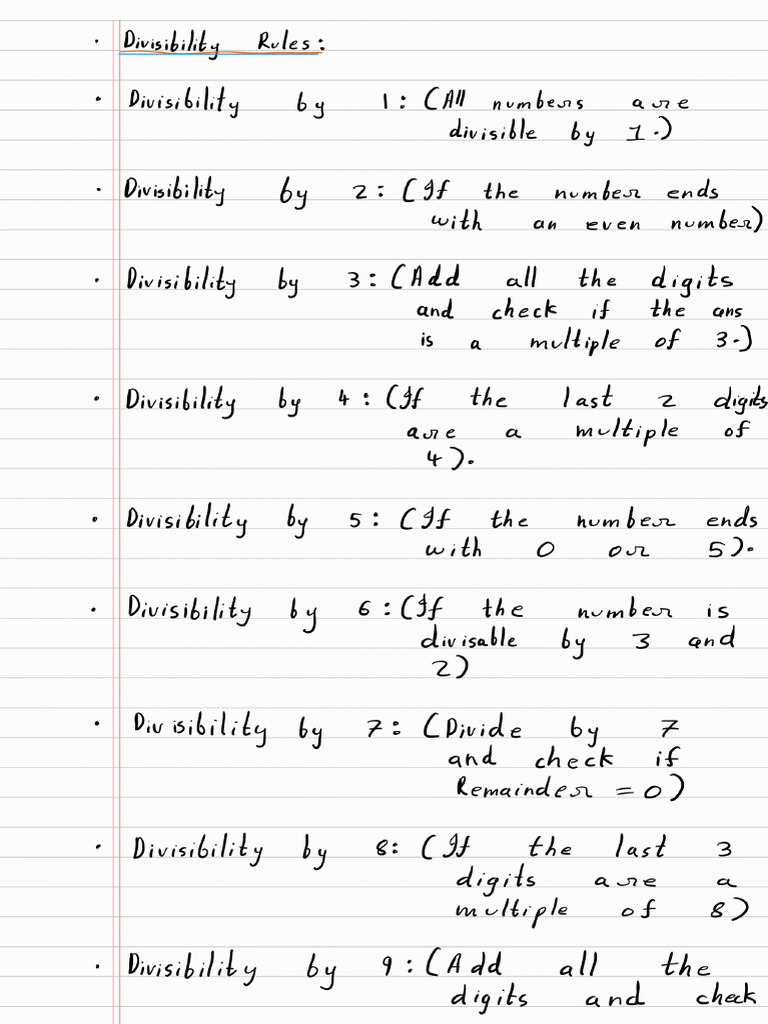 · Divisibility Rules:
· Divisibility by 1: (All numbers are
divisible by 1.)
· Divisibility by 2: (If the number ends
with an even number)
· Divisibility by 3: (Add all the digits
and check if the ans
is a multiple of 3.)
· Divisibility by 4: (If the last 2 digits
are a multiple of
4).
· Divisibility by 5: (If the number ends
with 0 or 5).
· Divisibility by 6: (If the number is
divisable by 3 and
2)
· Divisibility by 7: (Divide by 7
and check if
Remainder = 0)
· Divisibility by 8: (If the last 3
digits are a
multiple of 8)
· Divisibility by 9: (Add all the
digits and check